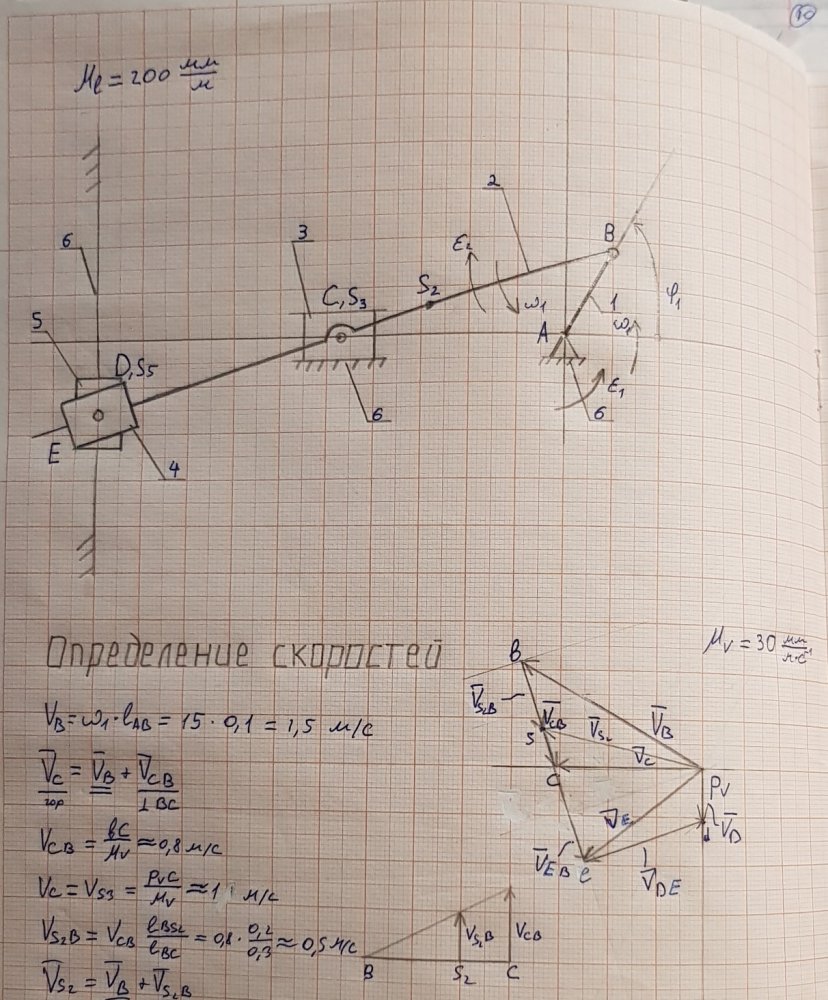 10
Mℓ = 200 мм/м
2
6
3
B
ε₂
S₂
φ₁
C,S₃
ω₁
1
5
A
ω₁
D,S₅
ε₁
6
6
E
4
Определение скоростей
μᵥ = 30 мм/м·с⁻¹
V_B = ω₁·ℓ_AB = 15 · 0,1 = 1,5 м/с
V̄_C = V̄_B + V̄_CB
гор ⊥ BC
V_CB = bc/μᵥ ≈ 0,8 м/с
V_C = V_S3 = PᵥC/μᵥ ≈ 1 м/с
V_S₂B = V_CB ℓ_BS₂/ℓ_BC = 0,8 · 0,2/0,3 ≈ 0,5 м/с
V̄_S₂ = V̄_B + V̄_S₂B
B
V̄_S₂B
V̄_CB
V̄_S₂
V̄_B
S
V̄_C
C
Pᵥ
V̄_E
V̄_D
d
V̄_EB
e
V̄_DE
V_S₂B
V_CB
B
S₂
C